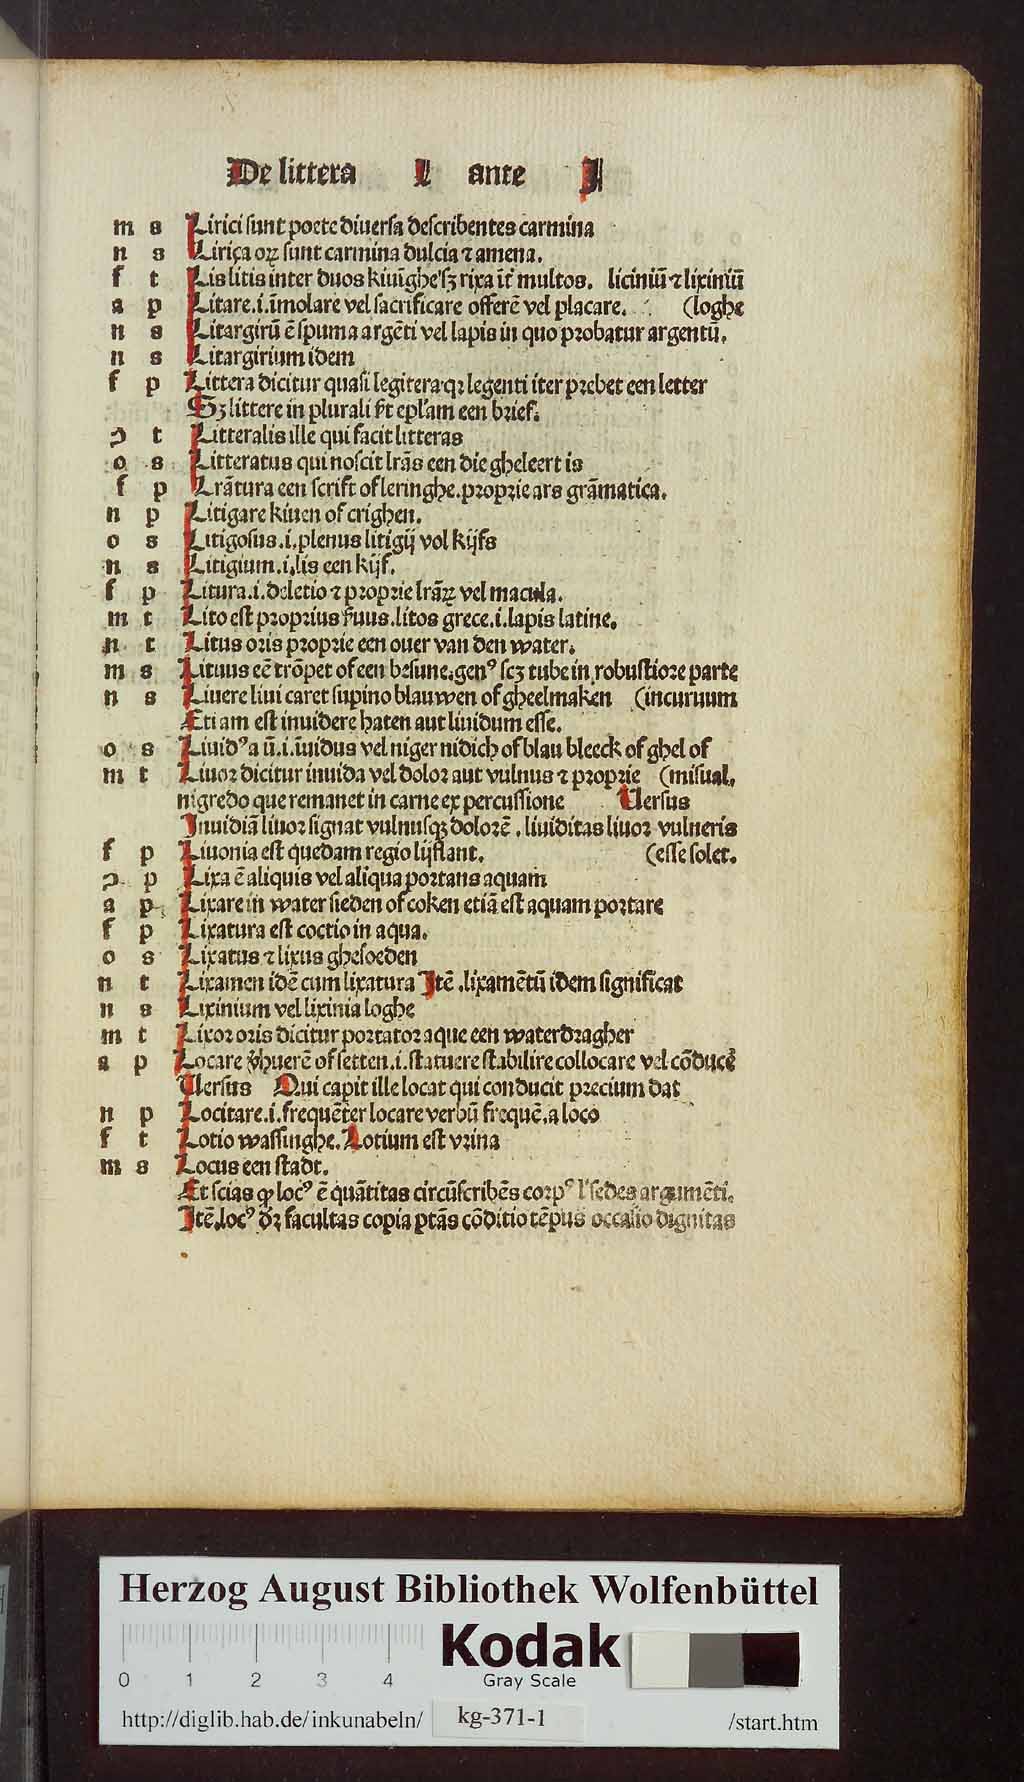 De littera L ante I
m s Lirici sunt poete diuersa describentes carmina
n s Lirica oꝝ sunt carmina dulcia ⁊ amena.
f t Lis litis inter duos kiuīghe sꝫ rixa īt᷑ multos. liciniū ⁊ lixiniū
a p Litare.i.īmolare vel sacrificare offerē vel placare. (loghe
n s Litargirū ē spuma argēti vel lapis in quo probatur argentū.
n s Litargirium idem
f p Littera dicitur quasi legitera.qꝛ legenti iter prebet een letter
Sꝫ littere in plurali epl'am een brief.
ꝯ t Litteralis ille qui facit litteras
o s Litteratus qui noscit lrās een die gheleert is
f p Lrātura een scrift of leringhe.proprie ars grāmatica.
n p Litigare kiuen of crighen.
o s Litigosus.i.plenus litigij vol kijfs
n s Litigium.i.lis een kijf.
f p Litura.i.deletio ⁊ proprie lrāꝝ vel macula.
m t Lito est proprius .litos grece.i.lapis latine.
n t Litus oris proprie een ouer van den water.
m s Lituus eē trōpet of een besune.genꝰ scꝫ tube in robustiore parte
n s Liuere liui caret supino blauwen of gheelmaken (incuruum
Eti am est inuidere haten aut liuidum esse.
o s Liuidꝰ a ū.i.īuidus vel niger nidich of blau bleeck of ghel of
m t Liuor dicitur inuida vel dolor aut vulnus ⁊ proprie (misual.
nigredo que remanet in carne ex percussione Uersus
Inuidiā liuor signat vulnusqꝫ dolorē . liuiditas liuor vulneris
f p Liuonia est quedam regio lijflant. (esse solet.
ꝯ p Lixa ē aliquis vel aliqua portans aquam
a p Lixare in water sieden of coken etiā est aquam portare
f p Lixatura est coctio in aqua.
o s Lixatus ⁊ lixus ghesoeden
n t Lixamen idē cum lixatura Itē .lixamētū idem significat
n s Lixinium vel lixinia loghe
m t Lixor oris dicitur portator aque een waterdragher
a p Locare v̄huerē of setten.i.statuere stabilire collocare vel cōducē
Uersus Qui capit ille locat qui conducit precium dat
n p Locitare.i.frequēter locare verbū frequē.a loco
f t Lotio wassinghe. Lotium est vrina
m s Locus een stadt.
Et scias ꝙ locꝰ ē quātitas circūscribēs corpꝰ l' sedes argumēti.
Itē.locꝰ dꝛ facultas copia ptās cōditio tēpus occasio dignitas
Herzog August Bibliothek Wolfenbüttel
0 1 2 3 4
Kodak
Gray Scale
http://diglib.hab.de/inkunabeln/ kg-371-1 /start.htm